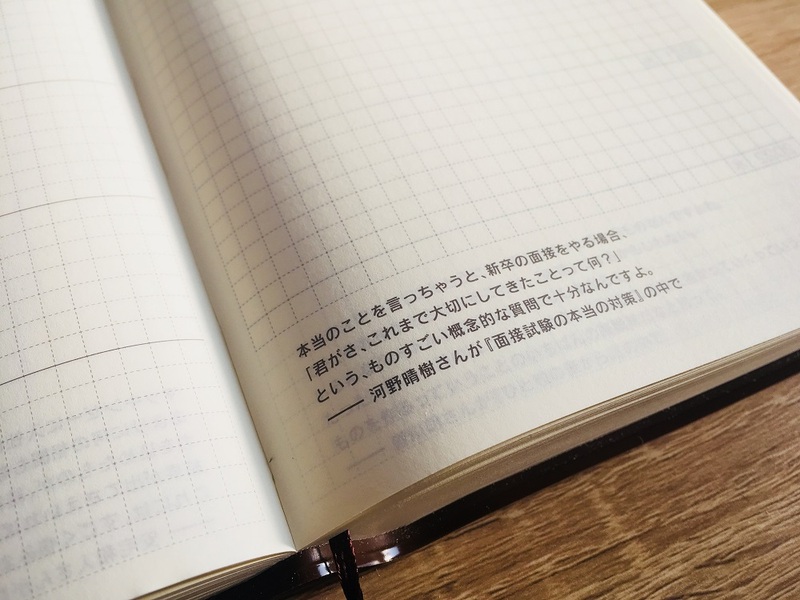 本当のことを言っちゃうと、新卒の面接をやる場合、
「君がさ、これまで大切にしてきたことって何？」
という、ものすごい概念的な質問で十分なんですよ。
── 河野晴樹さんが『面接試験の本当の対策』の中で